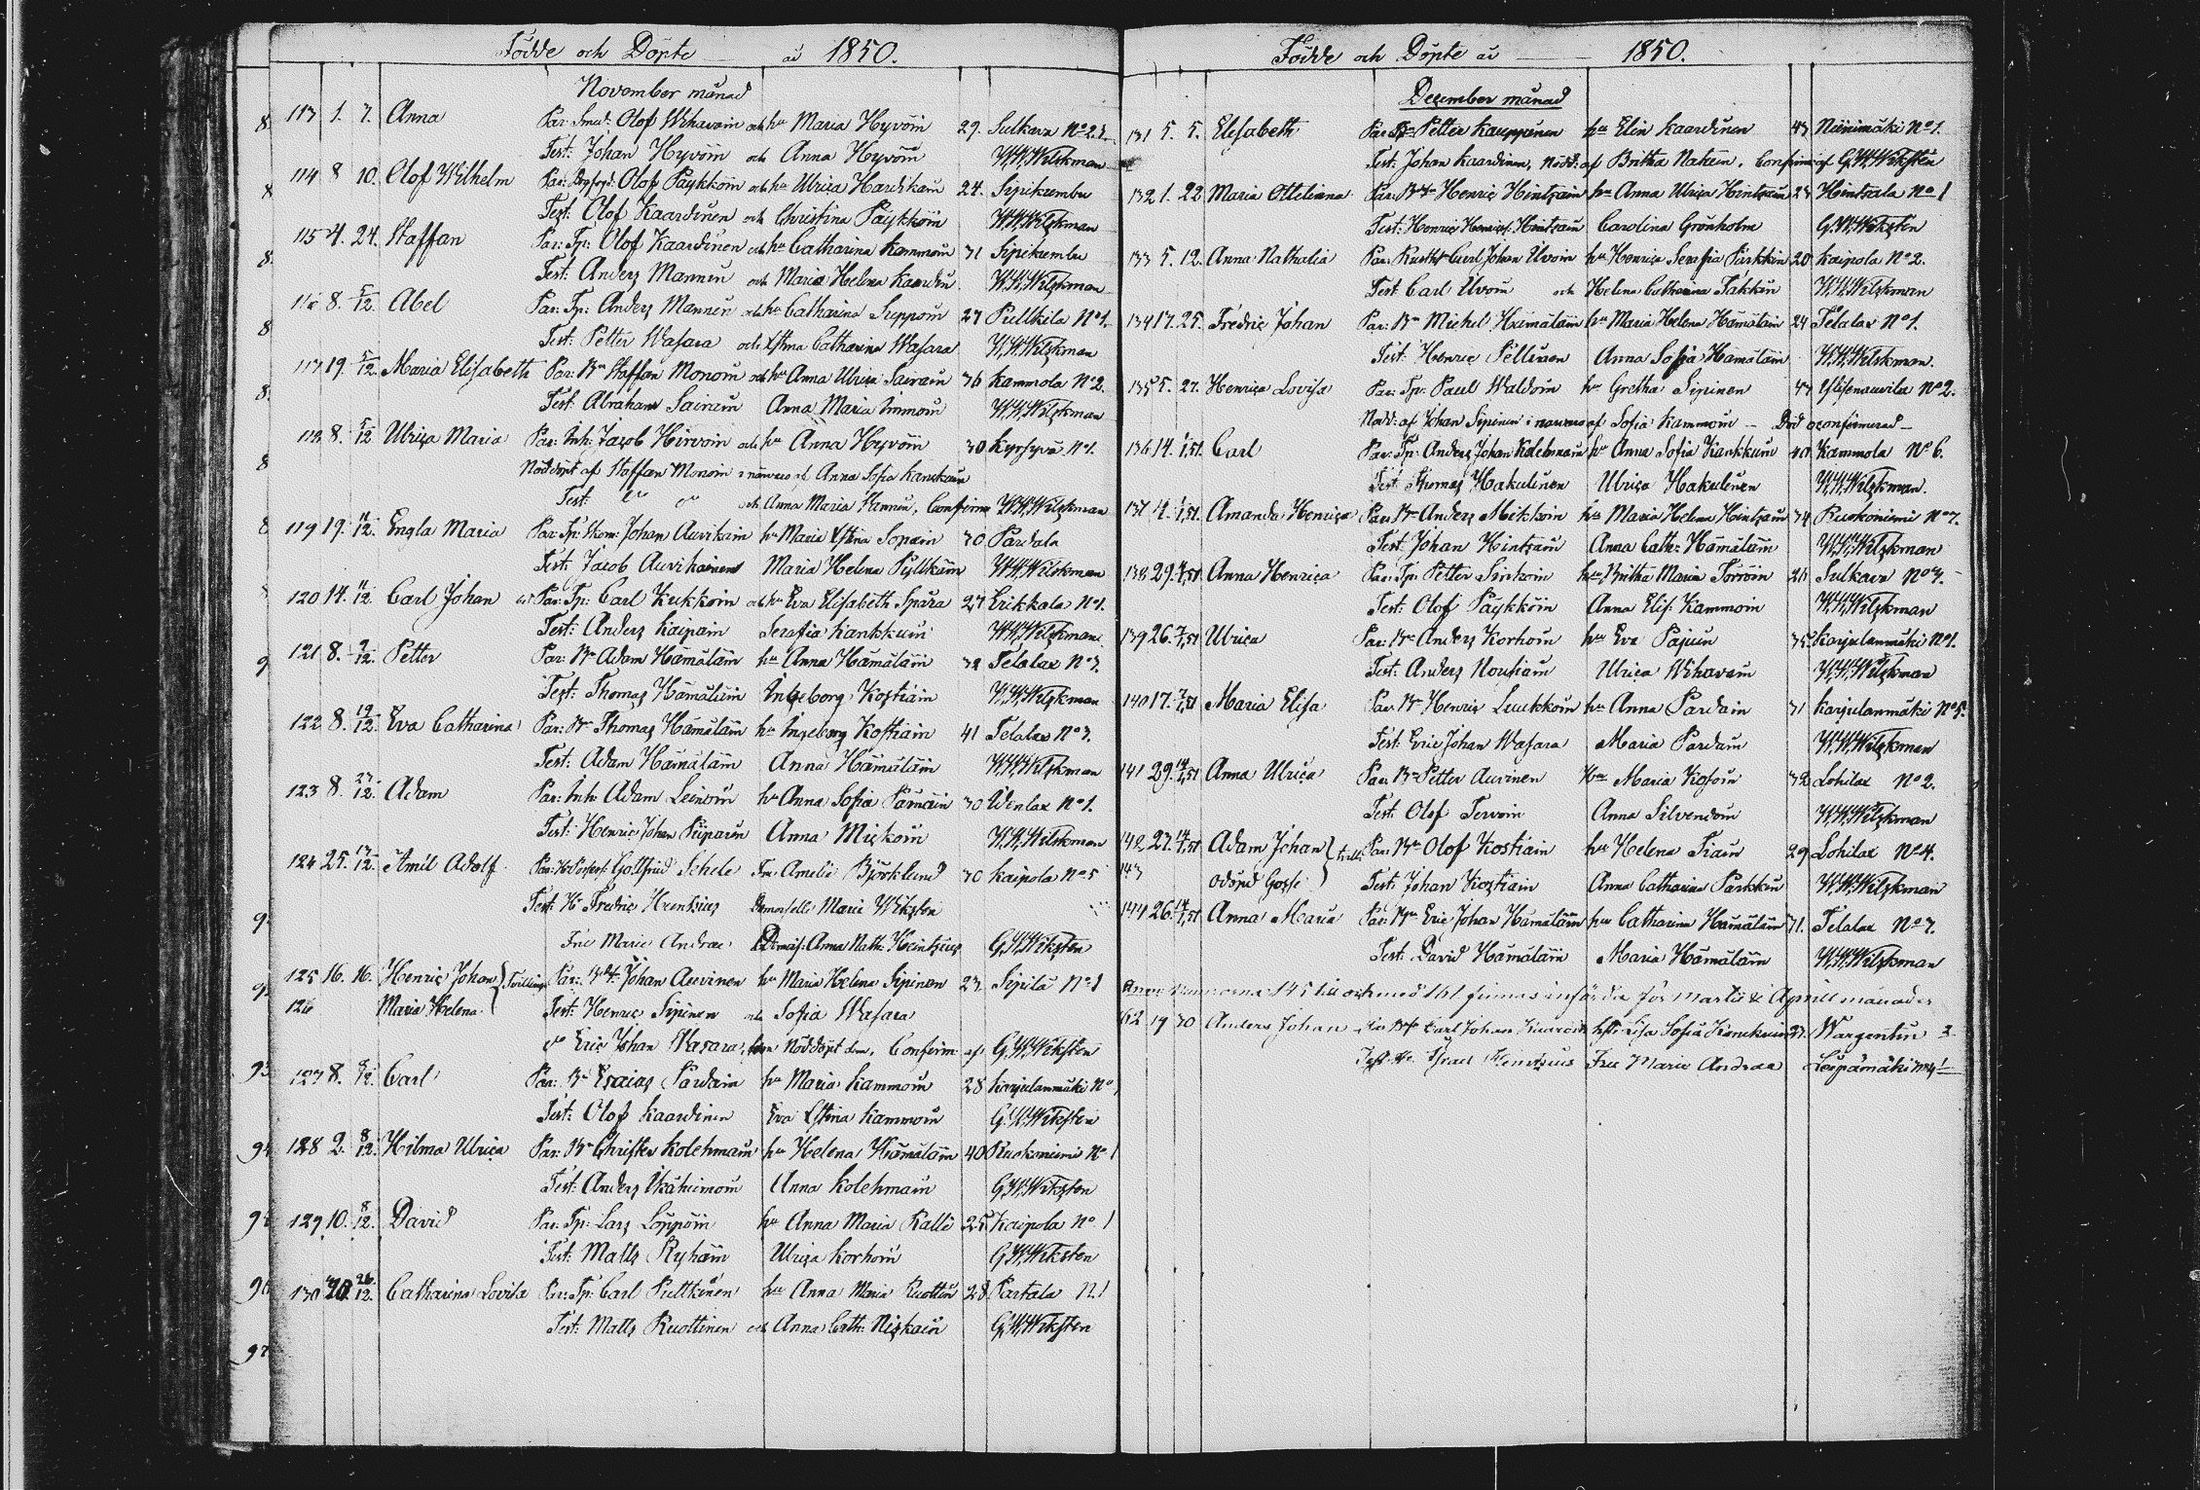 Födde och Döpte år 1850.
November månad
113 1. 7. Anna Par: Olof Wihavain och hu Maria Hyvöin 29. Sulkava No 2.
Test: Johan Hyvöin och Anna Hyvöin W.W. Wilskman
114 8 10. Olof Wilhelm Par: Olof Päykköin och hu Ulrica 24. Sipikumbu
Test: Olof Kaardinen och Christina Päykköin W.W. Wilskman
115 4. 24. Staffan Par: Tp: Olof Kaardinen och hu Catharina Kammoin 31 Sipikumbu
Test: Anders Mannin och Maria Helena Kaardin W.W. Wilskman
116 8. 5/12. Abel Par: Tp: Anders Mannin och hu Catharina Suppoin 27 Pullkila No 1.
Test: Petter Wasara och Catharina Wasara W.W. Wilskman
117 19. 5/12. Maria Elisabeth Par: Bn Staffan Monoin och hu Anna Ulrica Sairain 36 Kammola No 2.
Test: Abraham Sairain Anna Maria Immoin W.W. Wilskman
118. 8. 5/12 Ulrica Maria Par: Inh: Jacob Hirvoin och hu Anna Hyvöin 30 Kyrsyvä No 1.
Nöddöpt af Staffan Monoin i närvaro af Anna Sofia
Test: do do och Anna Maria Hannin, Confirm W.W. Wilskman
119 19. 11/12. Engla Maria Par: Johan Auvikain hu Maria Stina Sopain 30 Pardala
Test: Jacob Auvikainen Maria Helena Pyllkäin W.W. Wilskman
120 14. 11/12. Carl Johan Par: Tp: Carl Kukkoin och hu Eva Elisabeth Spåra 27 Erikkala No 1.
Test: Anders Kaipain Serafia Kankkuin W.W. Wilskman
121 8. 9/12. Petter Par: Bn Adam Hämäläin hu Anna Hämäläin 32 Telalax No 7.
Test: Thomas Hämäläin Ingeborg Kostiain W.W. Wilskman
122 8. 19/12. Eva Catharina Par: Bn Thomas Hämäläin hu Ingeborg Kostiain 41 Telalax No 7.
Test: Adam Hämäläin Anna Hämäläin W.W. Wilskman
123 8. 27/12. Adam Par: Inh: Adam Leinoin hu Anna Sofia Pärnäin 30 Wenlax No 1.
Test: Henric Johan Piiparin Anna Mickoin W.W. Wilskman
124 25. 17/12. Emil Adolf Par: Gottfrid Schele Fru Amelie Björklund 30 Kaipola No 5
Test: Hr Fredric Hrenksius Demoiselle Marie Wiksten
Fru Marie Andrae Demois: Anna Nath: Heintzius G.W. Wiksten
125 16. 16. Henric Johan } Tvilling Par: Johan Auvinen hu Maria Helena Sipinen 23. Sipilä No 1
126 Maria Helena Test: Henric Sipinen och Sofia Wasara
do Eric Johan Wasara, som Nöddöpt dem, Confirm af G.W. Wiksten
127 8. 8/12. Carl Par: Bn Esaias Pardain hu Maria Kammoin 28 Karjulanmäki No 1
Test: Olof Kaardinen Eva Stina Kammoin G.W. Wiksten
128 2. 8/12. Hilma Ulrica Par: Bn Christer Kolehmain hu Helena Hämäläin 40 Ruokoniemi No 1
Test: Anders Ikäheimoin Anna Kolehmain G.W. Wiksten
129 10. 8/12. David Par: Tp: Lars Löppöin hu Anna Maria Ralli 25 Kaipola No 1
Test: Matts Ryhäin Ulrica Korhoin G.W. Wiksten
130 20. 26/12. Catharina Lovisa Par: Tp: Carl Pulkinen hu Anna Maria Ruottin 28 Partala N. 1
Test: Matts Ruottinen och Anna Cath: Niskain G.W. Wiksten
Födde och Döpte år 1850.
December månad
131 5. 5. Elisabeth Par: Bn Petter Kauppinen hu Elin Kaardinen 43 Niinimäki No 1.
Test: Johan Kaardinen, Nödd: af Britha Nakuin. Confirm: af G.W. Wiksten
132 1. 22 Maria Ottiliana Par: Henric Hintzain hu Anna Ulrica Hintzain 23 Hintzala No 1
Test: Henric Henrics: Hintzain Carolina Grönholm G.W. Wiksten
133 5. 12. Anna Nathalia Par: Carl Johan Ulvoin hu Henrica Serafia Parkkin 20 Kaipola No 2.
Test: Carl Ulvoin och Helena Catharina Takkin W.W. Wilskman
134 17. 25. Fredric Johan Par: Bn Michel Hämäläin hu Maria Helena Hämäläin 24 Telalax No 1.
Test: Henric Pellinen Anna Sofia Hämäläin W.W. Wilskman.
135 5. 27. Henrica Lovisa Par: Tp: Paul Waldoin hu Gretha Sipinen 47 No 2.
Nödd: af Johan Sipinen i närvaro af Sofia Kammoin — Död oconfirmerad —
136 14. 1/1,51. Carl Par: Tp: Anders Johan Kolehmain hu Anna Sofia Kankkuin 40. Kammola No 6.
Test: Thomas Hakulinen Ulrica Hakulinen W.W. Wilskman.
137 4. 1/1,51. Amanda Henrica Par: Bn Anders Mikkoin hu Maria Helena Hintzain 34 Ruokoniemi No 7.
Test: Johan Hintzain Anna Cath: Hämäläin W.W. Wilskman
138 29. 4/1,51 Anna Henrica Par: Tp: Petter Sirkoin hu Britha Maria Torröin 26 Sulkava No 7.
Test: Olof Päykköin Anna Elis: Kammoin W.W. Wilskman
139 26. 7/1,51 Ulrica Par: Bn Anders Korhoin hu Eva Pajuin 35 Karjulanmäki No 1.
Test: Anders Noutiain Ulrica Wihavain W.W. Wilskman
140 17. 7/1,51 Maria Elisa Par: Bn Henric Luukkoin hu Anna Pardain 31 Karjulanmäki No 5.
Test: Eric Johan Wasara Maria Pardain W.W. Wilskman
141 29. 14/1,51 Anna Ulrica Par: Bn Petter Auvinen hu Maria Kosoin 32 Lohilax No 2.
Test: Olof Tervoin Anna Silvendoin W.W. Wilskman
142 27. 14/1,51 Adam Johan } Par: Bn Olof Kostiain hu Helena Tiain 29 Lohilax No 4.
143 odöpd Gosse Test: Johan Kostiain Anna Catharina Parkkin W.W. Wilskman
144 26. 14/1,51 Anna Maria Par: Bn Eric Johan Hämäläin hu Catharina Hämäläin 31. Telalax No 7.
Test: David Hämäläin Maria Hämäläin W.W. Wilskman
145 till och med 161 finnas införda för Martii & Aprill månader
162 19 30 Anders Johan Carl Johan Lisa Sofia 27. Wargentin 2.
Test: Hr Israel Fru Marie Andrae